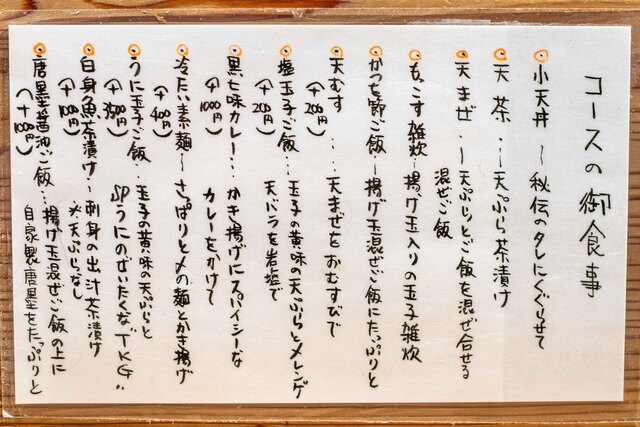 コースの御食事
小天丼 〜 秘伝のタレにくぐらせて
天茶 … 〜天ぷら茶漬け
天まぜ … 〜天ぷらとご飯を混ぜ合せる
混ぜご飯
もっこす雑炊 〜揚げ玉入りの玉子雑炊
かつを節ご飯 〜揚げ玉混ぜご飯にたっぷりと
天むす … 天まぜをおむすびで
(+200円)
塩玉子ご飯 … 玉子の黄味の天ぷらとメレンゲ
(+200円) 天バラを岩塩で
黒七味カレー … かき揚げにスパイシーな
(+1000円) カレーをかけて
冷たい素麺 〜 さっぱりと〆の麺とかき揚げ
(+400円)
うに玉子ご飯 … 玉子の黄味の天ぷらと
(+3500円) SPうにのぜいたくな"TKG"
白身魚茶漬け … 刺身の出汁茶漬け
(+1000円) ※天ぷらなし
唐墨醤油ご飯 … 揚げ玉混ぜご飯の上に
(+1000円) 自家製唐墨をたっぷりと